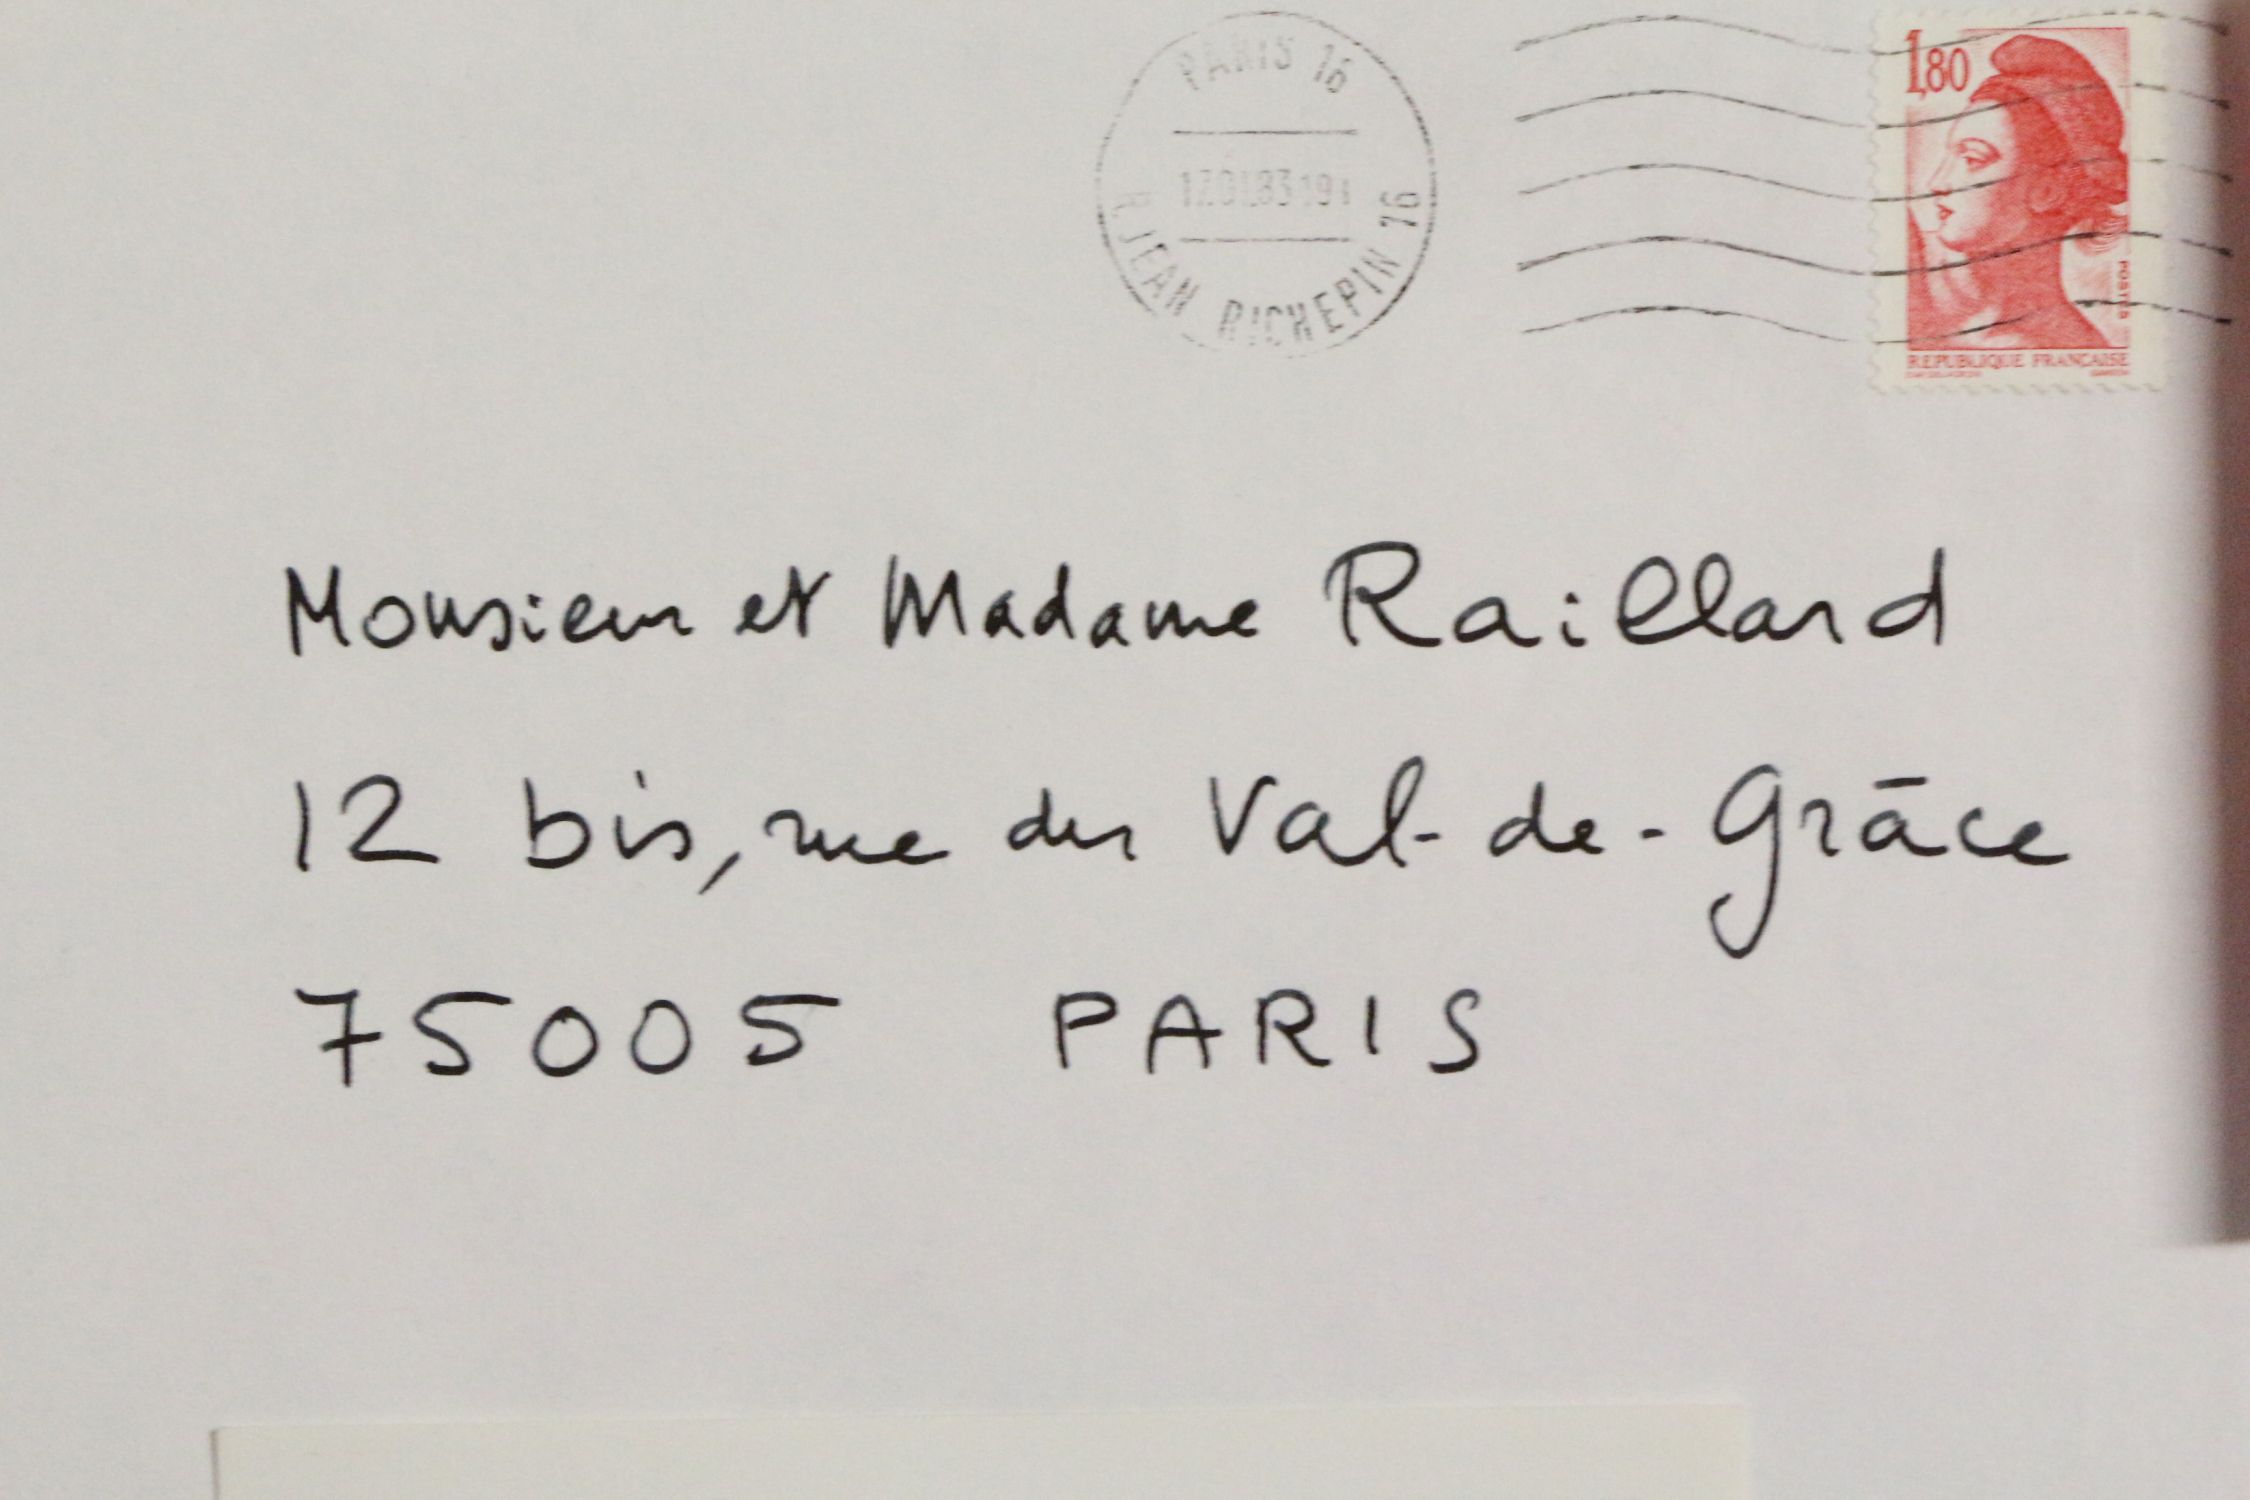 PARIS 16
17.01.83 19
R. JEAN RICHEPIN 16
1,80
POSTES
REPUBLIQUE FRANÇAISE
Monsieur et Madame Raillard
12 bis, rue du Val-de-Grâce
75005 PARIS